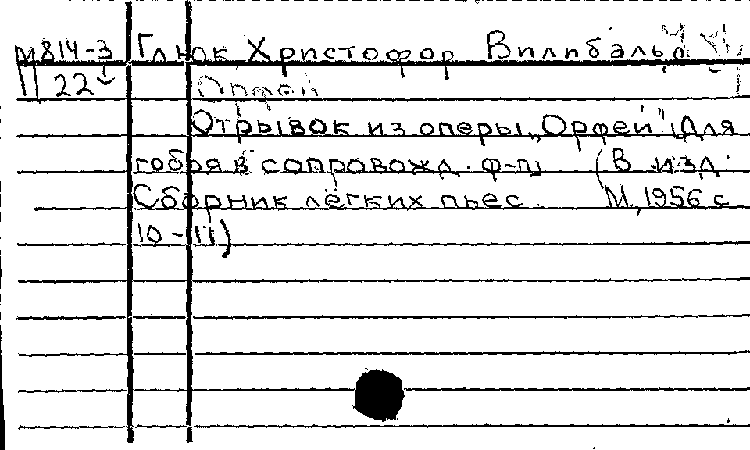 М814-3 Глюк Христофор Вилибальд
П 22 Орфей
Отрывок из оперы „Орфей" (Для
гобоя в сопровожд. ф-п) (В изд.
Сборник лёгких пьес. М, 1956 с
10-11)